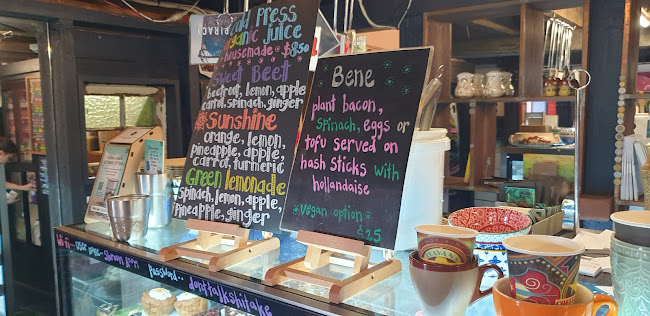 PIRACY
Cold Press
Organic Juice
housemade @ $8.50
Sweet Beet
beetroot, lemon, apple
carrot, spinach, ginger
Sunshine
orange, lemon,
pineapple, apple,
carrot, turmeric
Green lemonade
spinach, lemon, apple,
Pineapple, ginger
Bene
plant bacon,
spinach, eggs or
tofu served on
hash sticks with
hollandaise
Vegan option
$25
Wi-fi - User name - Shroom room
password - donttalkshiitake